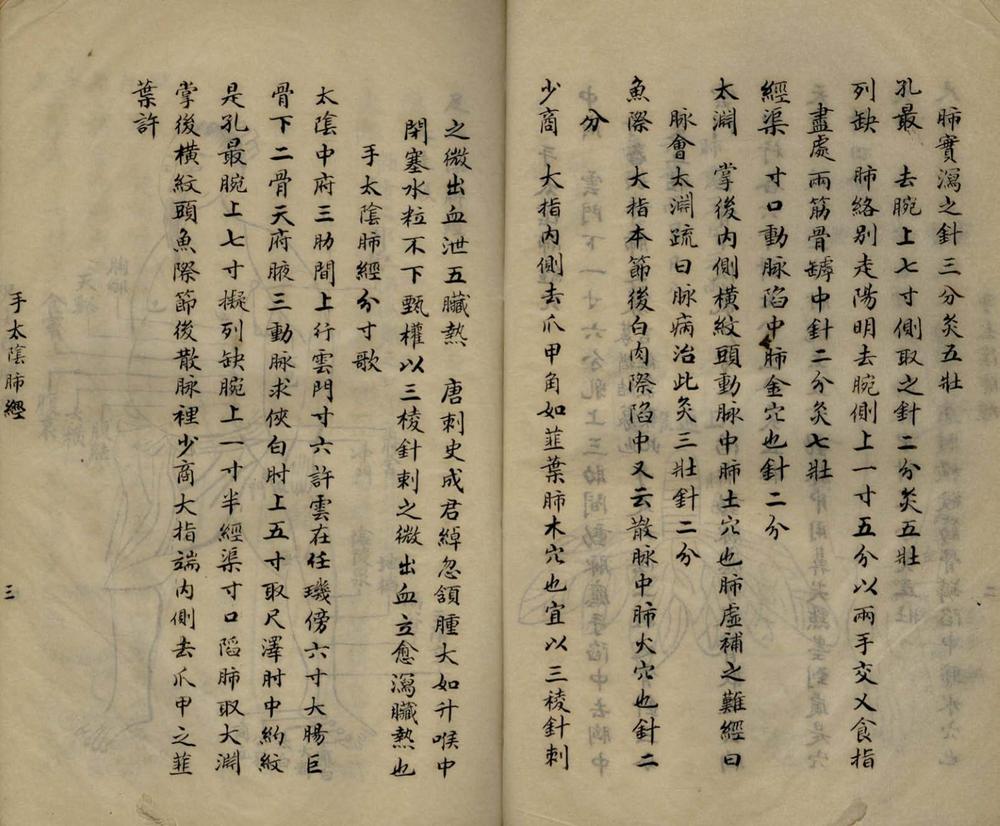 肺實瀉之針三分灸五壯
孔最　去腕上七寸側取之針二分灸五壯
列缺　肺絡別走陽明去腕側上一寸五分以兩手交叉食指
盡處兩筋骨罅中針二分灸七壯
經渠　寸口動脉陷中肺金穴也針二分
太淵　掌後內側橫紋頭動脉中肺土穴也肺虛補之難經曰
脉會太淵疏曰脉病治此灸三壯針二分
魚際　大指本節後白肉際陷中又云散脉中肺火穴也針二
分
少商　大指內側去爪甲角如韮葉肺木穴也宜以三稜針刺
之微出血泄五臟熱　唐刺史成君綽忽頷腫大如升喉中
閉塞水粒不下甄權以三棱針刺之微出血立愈瀉臟熱也
手太陰肺經分寸歌
太陰中府三肋間上行雲門寸六許雲在任璣傍六寸大腸巨
骨下二骨天府腋三動脉求俠白肘上五寸取尺澤肘中約紋
是孔最腕上七寸擬列缺腕上一寸半經渠寸口陷肺取大淵
掌後橫紋頭魚際節後散脉裡少商大指端內側去爪甲之韮
葉許
手太陰肺經
三